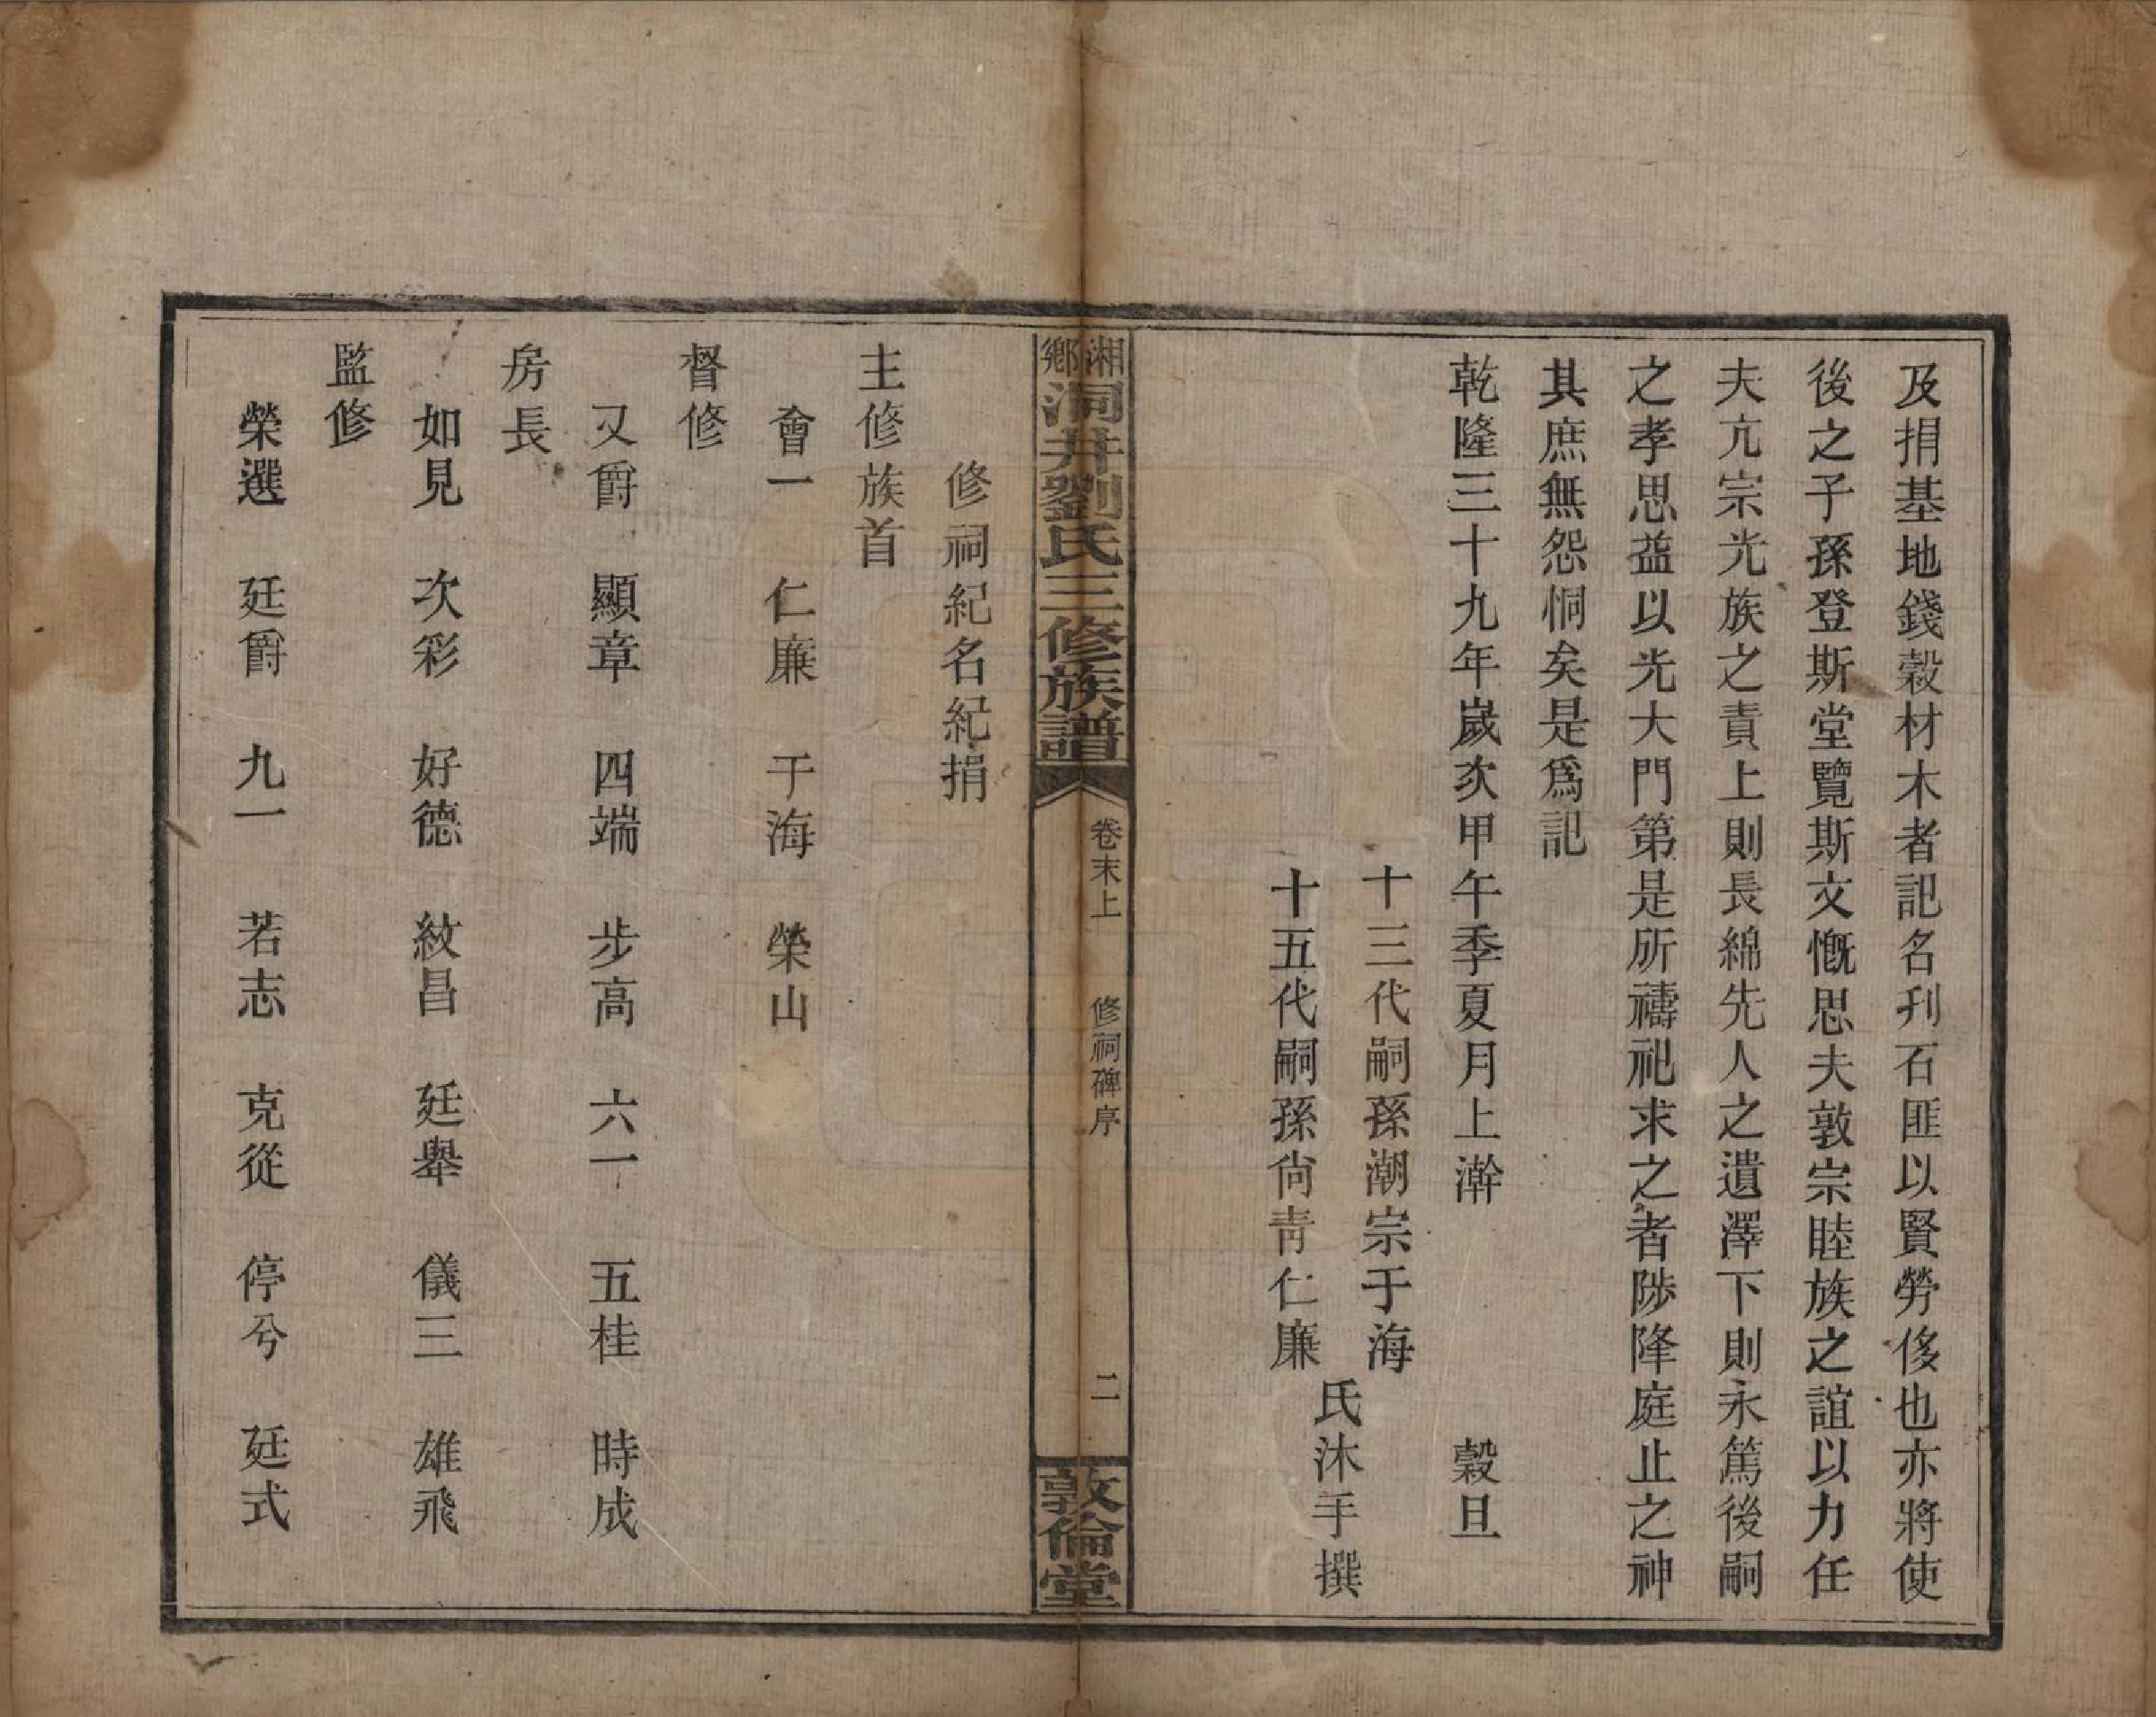 及捐基地錢穀材木者記名刋石匪以賢勞侈也亦將使
後之子孫登斯堂覽斯文慨思夫敦宗睦族之誼以力任
夫亢宗光族之責上則長綿先人之遺澤下則永篤後嗣
之孝思葢以光大門第是所禱祀求之者陟降庭止之神
其庶無怨恫矣是爲記
乾隆三十九年歲次甲午季夏月上澣 穀旦
十三代嗣孫潮宗于海
十五代嗣孫尙靑仁廉
氏沐手撰
湘鄉洞井劉氏三修族譜 卷末上 修祠碑序 二 敦倫堂
修祠紀名紀捐
主修族首
會一 仁廉 于海 榮山
督修
又爵 顯章 四端 步高 六一 五桂 時成
房長
如見 次彩 好德 紋昌 廷舉 儀三 雄飛
監修
榮選 廷爵 九一 若志 克從 停兮 廷式